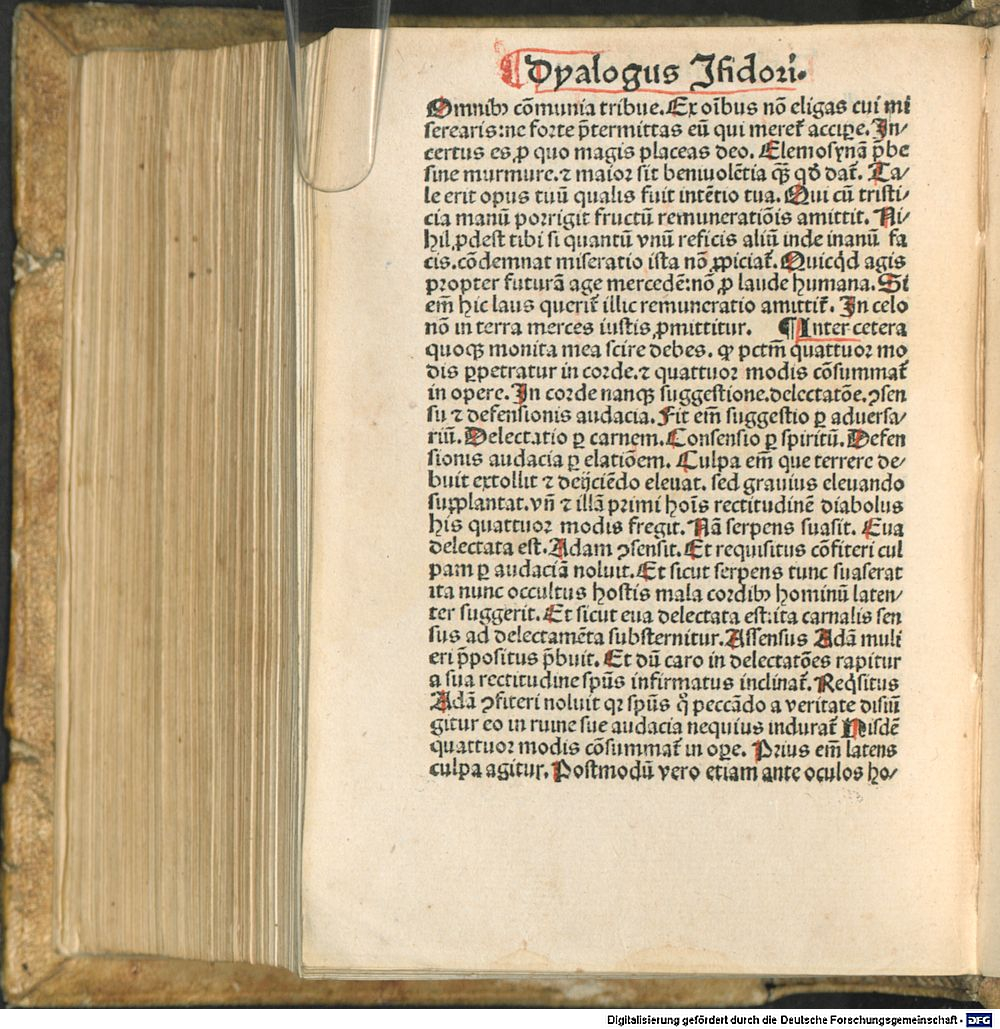 Dyalogus Isidori.
Omnibꝫ cōmunia tribue. Ex oībus nō eligas cui mi
serearis: ne forte p̄termittas eū qui meret̄ accipe. In⸗
certus es ꝓ quo magis placeas deo. Elemosynā p̄be
sine murmure. ⁊ maior sit beniuolētia qꝫ qď dat̄. Ta⸗
le erit opus tuū qualis fuit intētio tua. Qui cū tristi
cia manū porrigit fructū remuneratiōis amittit. Ni⸗
hil ꝓdest tibi si quantū vnū reficis aliū inde inanū fa
cis. cōdemnat miseratio ista nō ꝓpiciat̄. Quicq̇d agis
propter futurā age mercedē: nō ꝓ laude humana. Si
em̄ hic laus querit̄ illic remuneratio amittit̄. In celo
nō in terra merces iustis ꝓmittitur. ¶ Inter cetera
quoqꝫ monita mea scire debes. ꝙ pctm̄ quattuoꝛ mo
dis ꝑpetratur in corde. ⁊ quattuoꝛ modis cōsummat̄
in opere. In coꝛde nanqꝫ suggestione. delectatōe. ꝯsen
su ⁊ defensionis audacia. Fit em̄ suggestio ꝑ aduersa⸗
riū. Delectatio ꝑ carnem. Consensio ꝑ spiritū. Defen
sionis audacia ꝑ elatiōem. Culpa em̄ que terrere de⸗
buit extollit ⁊ deijciēdo eleuat. sed grauius eleuando
supplantat. vn̄ ⁊ illā primi hoīs rectitudinē diabolus
his quattuoꝛ modis fregit. Nā serpens suasit. Eua
delectata est. Adam ꝯsensit. Et requisitus cōfiteri cul
pam ꝑ audaciā noluit. Et sicut serpens tunc suaserat
ita nunc occultus hostis mala cordibꝫ hominū laten⸗
ter suggerit. Et sicut eua delectata est: ita carnalis sen
sus ad delectamēta substernitur. Assensus Adā muli
eri p̄positus p̄buit. Et dū caro in delectatōes rapitur
a sua rectitudine spūs infirmatus inclinat̄. Reqͥsitus
Adā ꝯfiteri noluit qꝛ spūs qͦ peccādo a veritate disiū
gitur eo in ruine sue audacia nequius indurat̄ Hisdē
quattuoꝛ modis cōsummat̄ in oꝑe. Prius em̄ latens
culpa agitur. Postmodū vero etiam ante oculos ho⸗
Digitalisierung gefördert durch die Deutsche Forschungsgemeinschaft - DFG